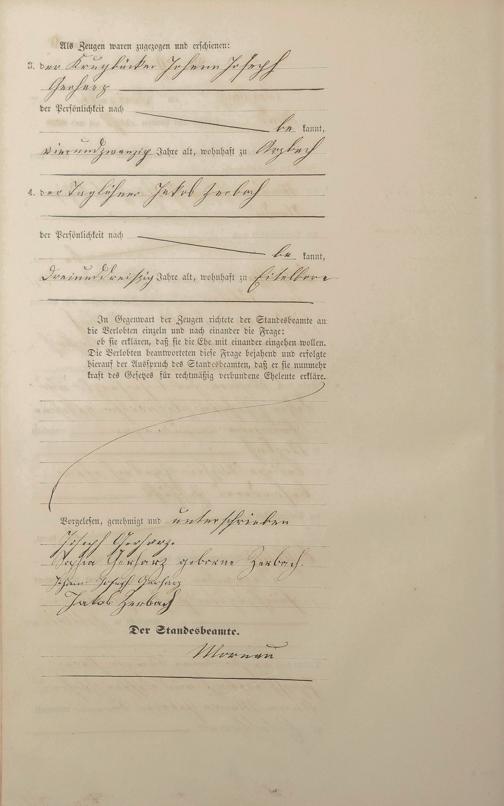 Als Zeugen waren zugezogen und erschienen:
3. der Krugbäcker Johann Joseph
Gerharz
der Persönlichkeit nach
be kannt,
vierundzwanzig Jahre alt, wohnhaft zu
4. der Taglöhner Jakob Zerbach
der Persönlichkeit nach
be kannt,
dreiunddreißig Jahre alt, wohnhaft zu Eitelborn
In Gegenwart der Zeugen richtete der Standesbeamte an
die Verlobten einzeln und nach einander die Frage:
ob sie erklären, daß sie die Ehe mit einander eingehen wollen.
Die Verlobten beantworteten diese Frage bejahend und erfolgte
hierauf der Ausspruch des Standesbeamten, daß er sie nunmehr
kraft des Gesetzes für rechtmäßig verbundene Eheleute erkläre.
Vorgelesen, genehmigt und unterschrieben
Joseph Gerharz
Sophia Gerharz geborne Zerbach.
Johann Joseph Gerharz
Jakob Zerbach
Der Standesbeamte.